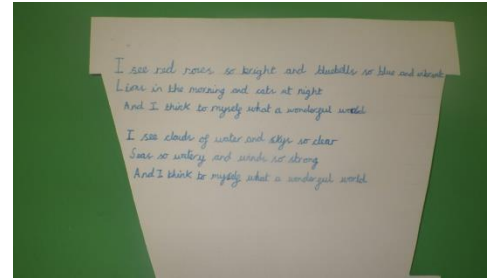 I see red roses so bright and bluebells so blue and vibrant
Lions in the morning and cats at night
And I think to myself what a wonderful world
I see clouds of water and skys so clear
Seas so watery and winds so strong
And I think to myself what a wonderful world